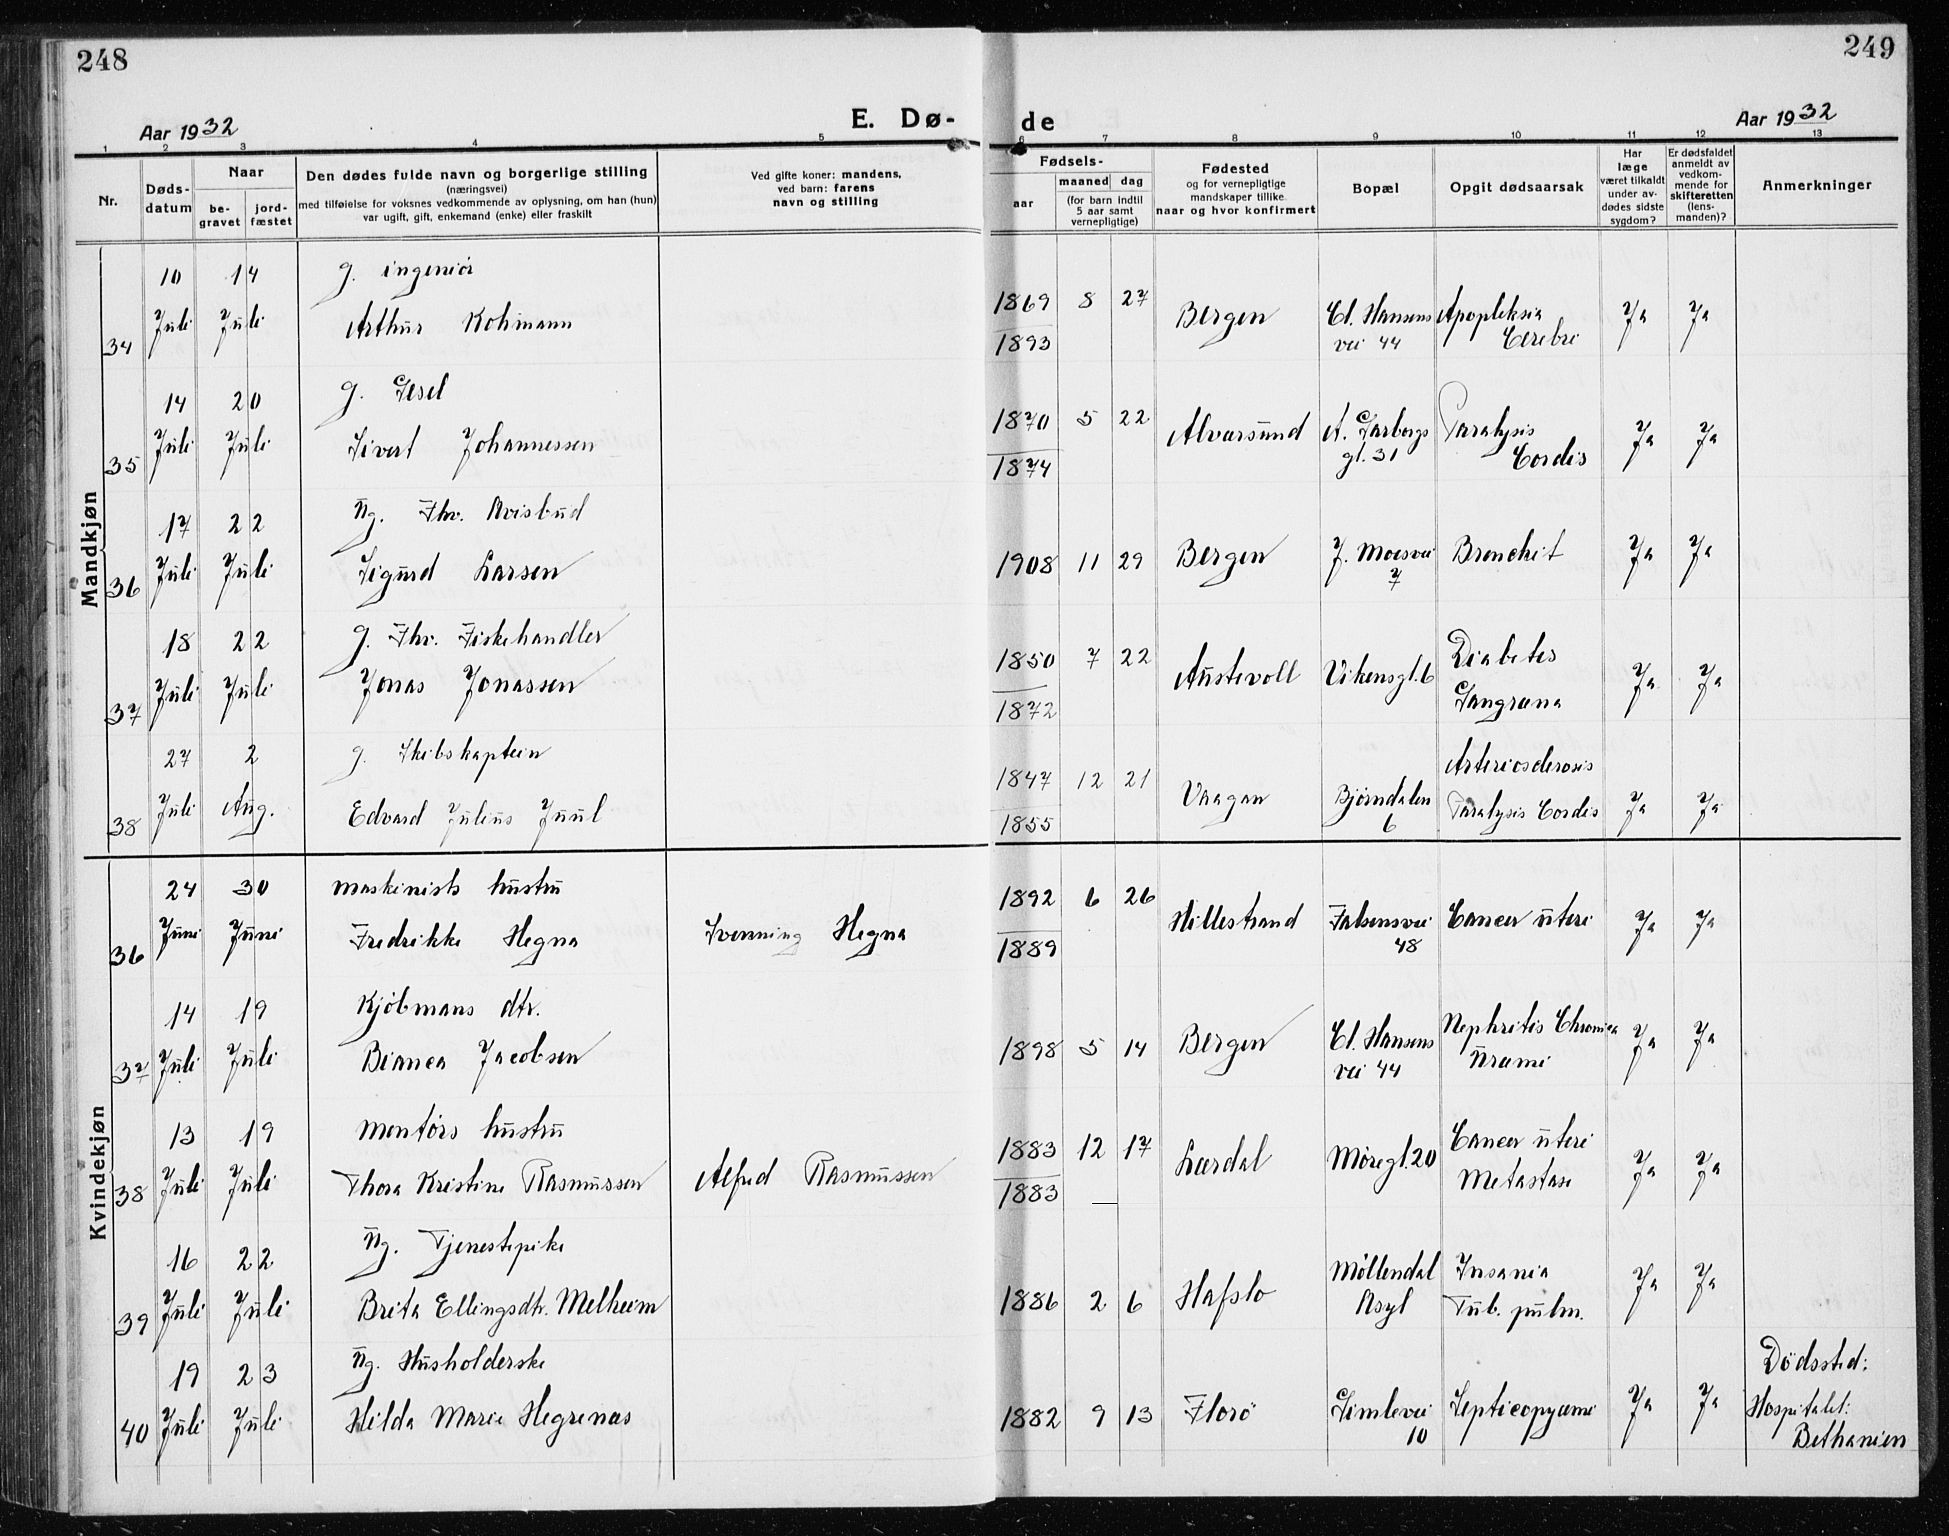 248
249
Aar 1932
E. Dø-
de
Aar 1932
1 2 3 4 5 6 7 8 9 10 11 12 13
Nr.
Døds-
datum
Naar
be-
gravet
jord-
fæstet
Den dødes fulde navn og borgerlige stilling
(næringsvei)
med tilføielse for voksnes vedkommende av oplysning, om han (hun)
var ugift, gift, enkemand (enke) eller fraskilt
Ved gifte koner: mandens,
ved barn: farens
navn og stilling
Fødsels-
aar
maaned
dag
(for barn indtil
5 aar samt
vernepligtige)
Fødested
og for vernepligtige
mandskaper tillike
naar og hvor konfirmert
Bopæl
Opgit dødsaarsak
Har
læge
været tilkaldt
under av-
dødes sidste
sygdom?
Er dødsfaldet
anmeldt av
vedkom-
mende for
skifteretten
(lens-
manden)?
Anmerkninger
Mandkjøn
34 10 Juli 14 Juli
g. ingeniør
Arthur Kohmann
1869 8 27
1893
Bergen
Cl. Hansens
vei 44
Apopleksia
Cerebri
Ja Ja
35 14 Juli 20 Juli
g.
Sivert Johannessen
1870 5 22
1874
Alversund
A. Garborgs
gt. 31
Paralysis
Cordis
Ja Ja
36 17 Juli 22 Juli
Ug. Fhv. Avisbud
Sigurd Larsen
1908 11 29
Bergen
J. Moesvei
7
Bronchit
Ja Ja
37 18 Juli 22 Juli
g. Fhv. Fiskehandler
Jonas Jonassen
1850 7 22
1872
Austevoll
Vikensgt. 6
Diabetes
Gangræna
Ja Ja
38 27 Juli 2 Aug.
g. Skibskaptein
Edvard Julius Juul
1847 12 21
1855
Vaagan
Bjørndalen
6
Arteriosclerosis
Paralysis Cordis
Ja Ja
Kvindekjøn
36 24 Juni 30 Juni
Maskinists hustru
Fredrikke Hegna
Svenning Hegna
1892 6 26
1889
Hillestrand
Falsensvei
48
Cancer uteri
Ja Ja
37 14 Juli 19 Juli
Kjøbmans dtr.
Bianca Jacobsen
1898 5 14
Bergen
Cl. Hansens
vei 44
Nephritis Chronica
Uræmi
Ja Ja
38 13 Juli 19 Juli
Montørs hustru
Thora Kristine Rasmussen
Alfred Rasmussen
1883 12 17
1883 —
Lærdal
Møregt. 20
Cancer uteri
Metastase
Ja Ja
39 16 Juli 22 Juli
Ug. Tjenestepike
Brita Ellingsdtr. Melheim
1886 2 6
Hafslo
Møllendal
Asyl
Insania
Tub. pulm.
Ja Ja
40 19 Juli 23 Juli
Ug. Husholderske
Hilda Marie Hegrenas
1882 9 13
Florø
Gimlevei
10
Septicopyæmi
Ja Ja
Dødssted:
Hospitalet:
Bethanien